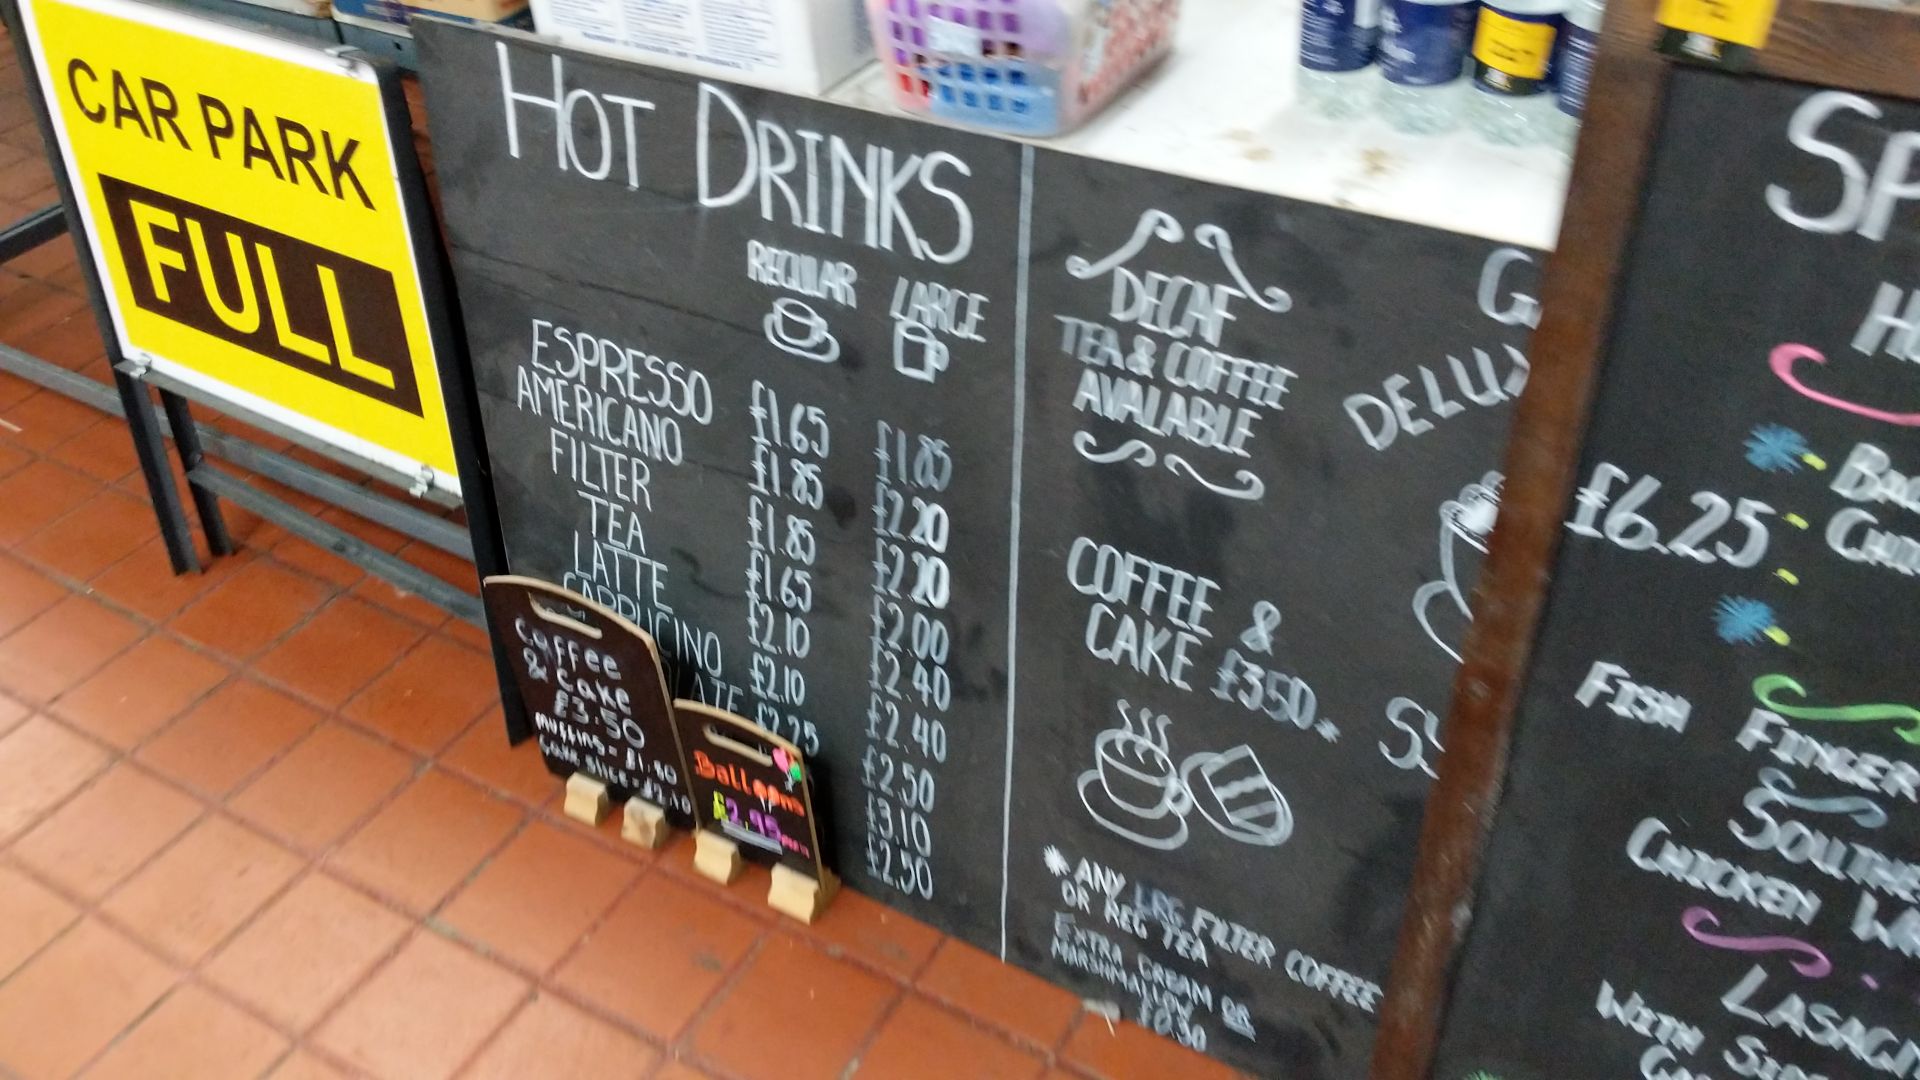 CAR PARK
FULL
HOT DRINKS
REGULAR LARGE
ESPRESSO £1.65 £1.85
AMERICANO £1.85 £2.20
FILTER £1.85 £2.20
TEA £1.65 £2.00
LATTE £2.10 £2.40
CAPPUCINO £2.10 £2.40
ATE £2.25 £2.50
£3.10
£2.50
Coffee
& Cake
£3.50
Muffins = £1.80
Cake Slice = £2.10
Balloons
£2.95
DECAF
TEA & COFFEE
AVALABLE
COFFEE &
CAKE £3.50*
* ANY LRG FILTER COFFEE
OR REG TEA
EXTRA CREAM OR
MARSHMALLOW
£0.50
G
DELUX
SP
H
£6.25
FISH FINGER
SOUTHE
CHICKEN WR
LASAGN
WITH